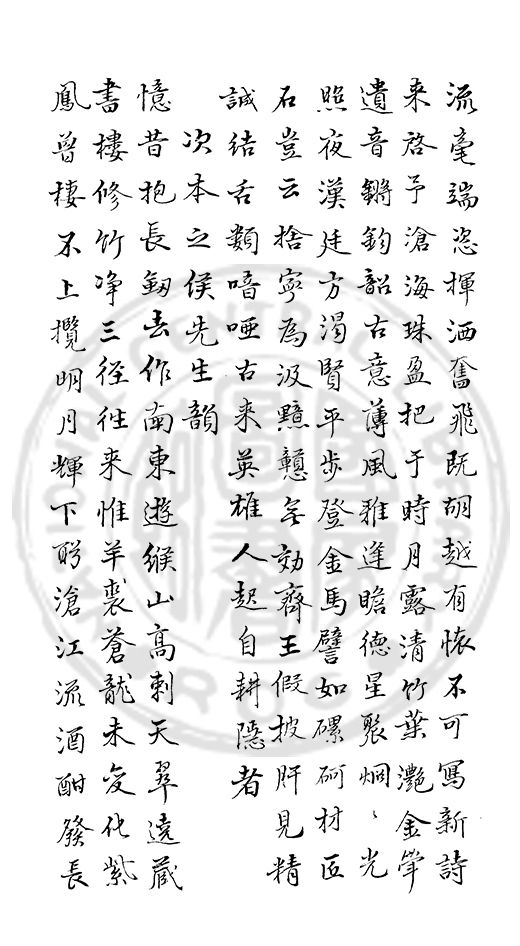 流毫端恣揮洒奮飛既胡越有懷不可寫新詩
來啓予滄海珠盈把于時月露清竹葉灔金斝
遺音鏘鈞韶古意薄風雅逢瞻德星聚烱々光
照夜漢廷方渴賢平步登金馬譬如磥砢材匠
石豈云捨寧為汲黯戇無効齊王假披肝見精
誠結舌類喑啞古來英雄人起自耕隱者
次本之侯先生韻
憶昔抱長劒去作南東遊緱山高刺天翠遠蔵
書樓修竹净三径往来惟羊裘蒼龍未变化紫
鳳曾棲不上攬明月輝下盻滄江流酒酣發長